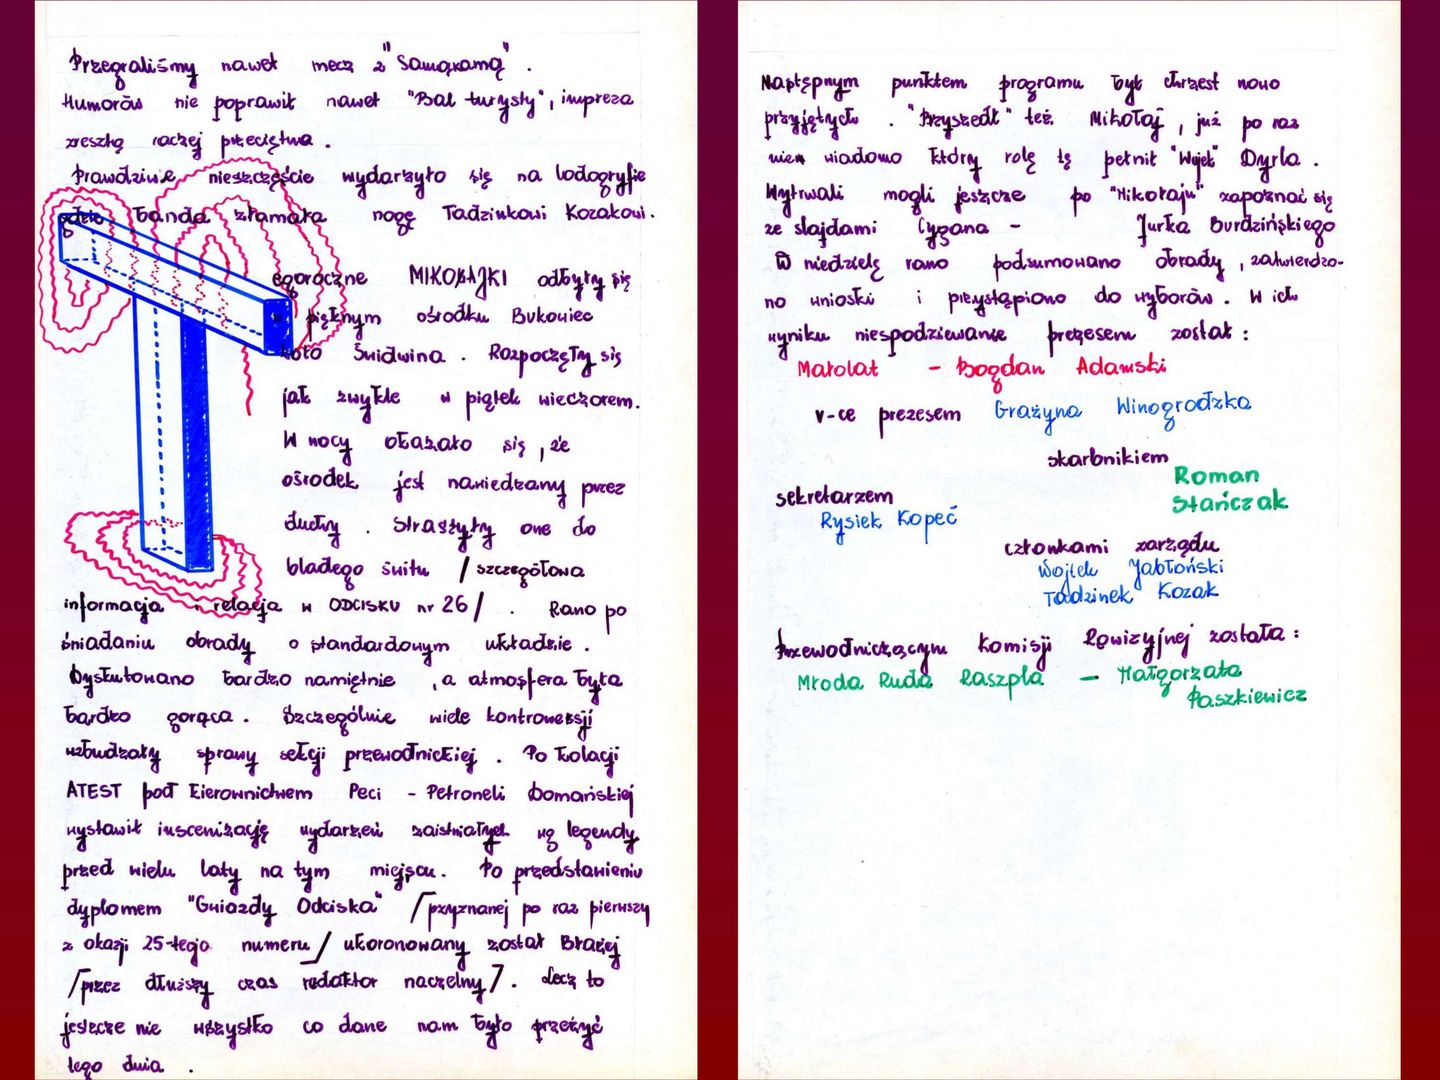 Przegraliśmy nawet mecz z "Samąxamą".
Humorów nie poprawił nawet "Bal turysty", impreza
zresztą raczej przeciętna.
Prawdziwe nieszczęście wydarzyło się na lodogryfie
gdzie banda złamała nogę Tadzinkowi Kozakowi.
Tegoroczne MIKOŁAJKI odbyły się
w pięknym ośrodku Bukowiec
koło Świdwina. Rozpoczęły się
jak zwykle w piątek wieczorem.
W nocy okazało się, że
ośrodek jest nawiedzany przez
duchy. Straszyły one do
bladego świtu /szczegółowa
informacja i relacja w ODCISKU nr 26/. Rano po
śniadaniu obrady o standardowym układzie.
Dyskutowano bardzo namiętnie, a atmosfera była
bardzo gorąca. Szczególnie wiele kontrowersji
wzbudzały sprawy sekcji przewodnickiej. Po kolacji
ATEST pod kierownictwem Peci - Petroneli Domańskiej
wystawił inscenizację wydarzeń zaistniałych wg legendy
przed wielu laty na tym miejscu. Po przedstawieniu
dyplomem "Gwiazdy Odciska" /przyznanej po raz pierwszy
z okazji 25-tego numeru/ ukoronowany został Błażej
/przez dłuższy czas redaktor naczelny/. Lecz to
jeszcze nie wszystko co dane nam było przeżyć
tego dnia.
Następnym punktem programu był chrzest nowo
przyjętych. "Przyszedł" też Mikołaj, już po raz
wiadomo który rolę tę pełnił "Wujek" Dyrla.
Wytrwali mogli jeszcze po "Mikołaju" zapoznać się
ze slajdami Cygana - Jurka Burdzińskiego
W niedzielę rano podsumowano obrady, zatwierdzo-
no wnioski i przystąpiono do wyborów. W ich
wyniku niespodziewanie prezesem został:
Małolat - Bogdan Adamski
v-ce prezesem Grażyna Winogrodzka
skarbnikiem
Roman
Stańczak
sekretarzem
Rysiek Kopeć
członkami zarządu
Wojtek Jabłoński
Tadzinek Kozak
Przewodniczącym Komisji Rewizyjnej została:
Młoda Ruda Raszpla - Małgorzata
Paszkiewicz